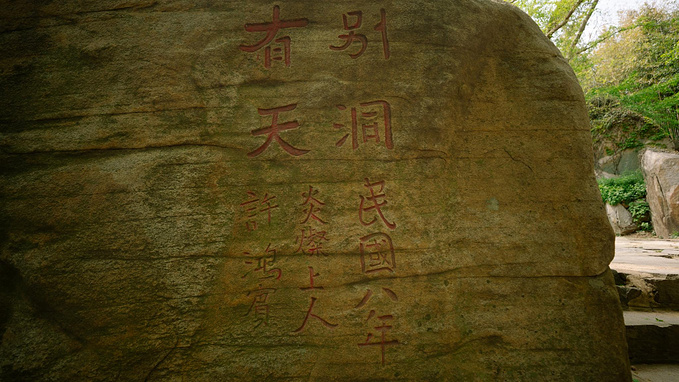 别有
洞天
民國八年
炎燦上人
許鴻賓